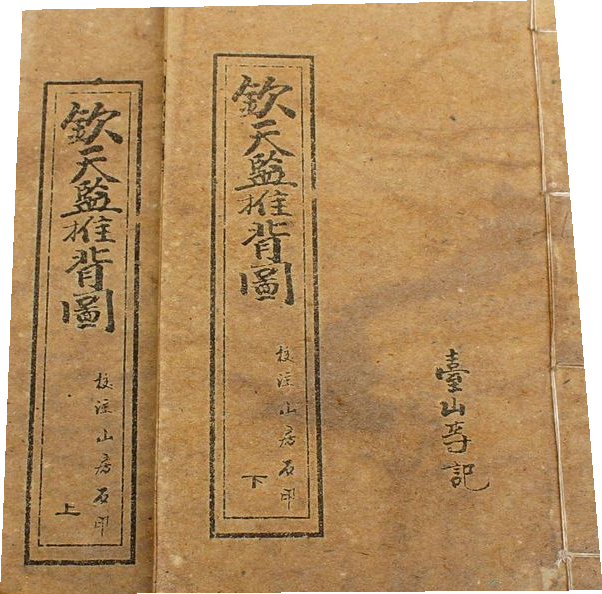 臺山寺記
欽天監推背圖
校注山房石印
下
欽天監推背圖
校注山房石印
上